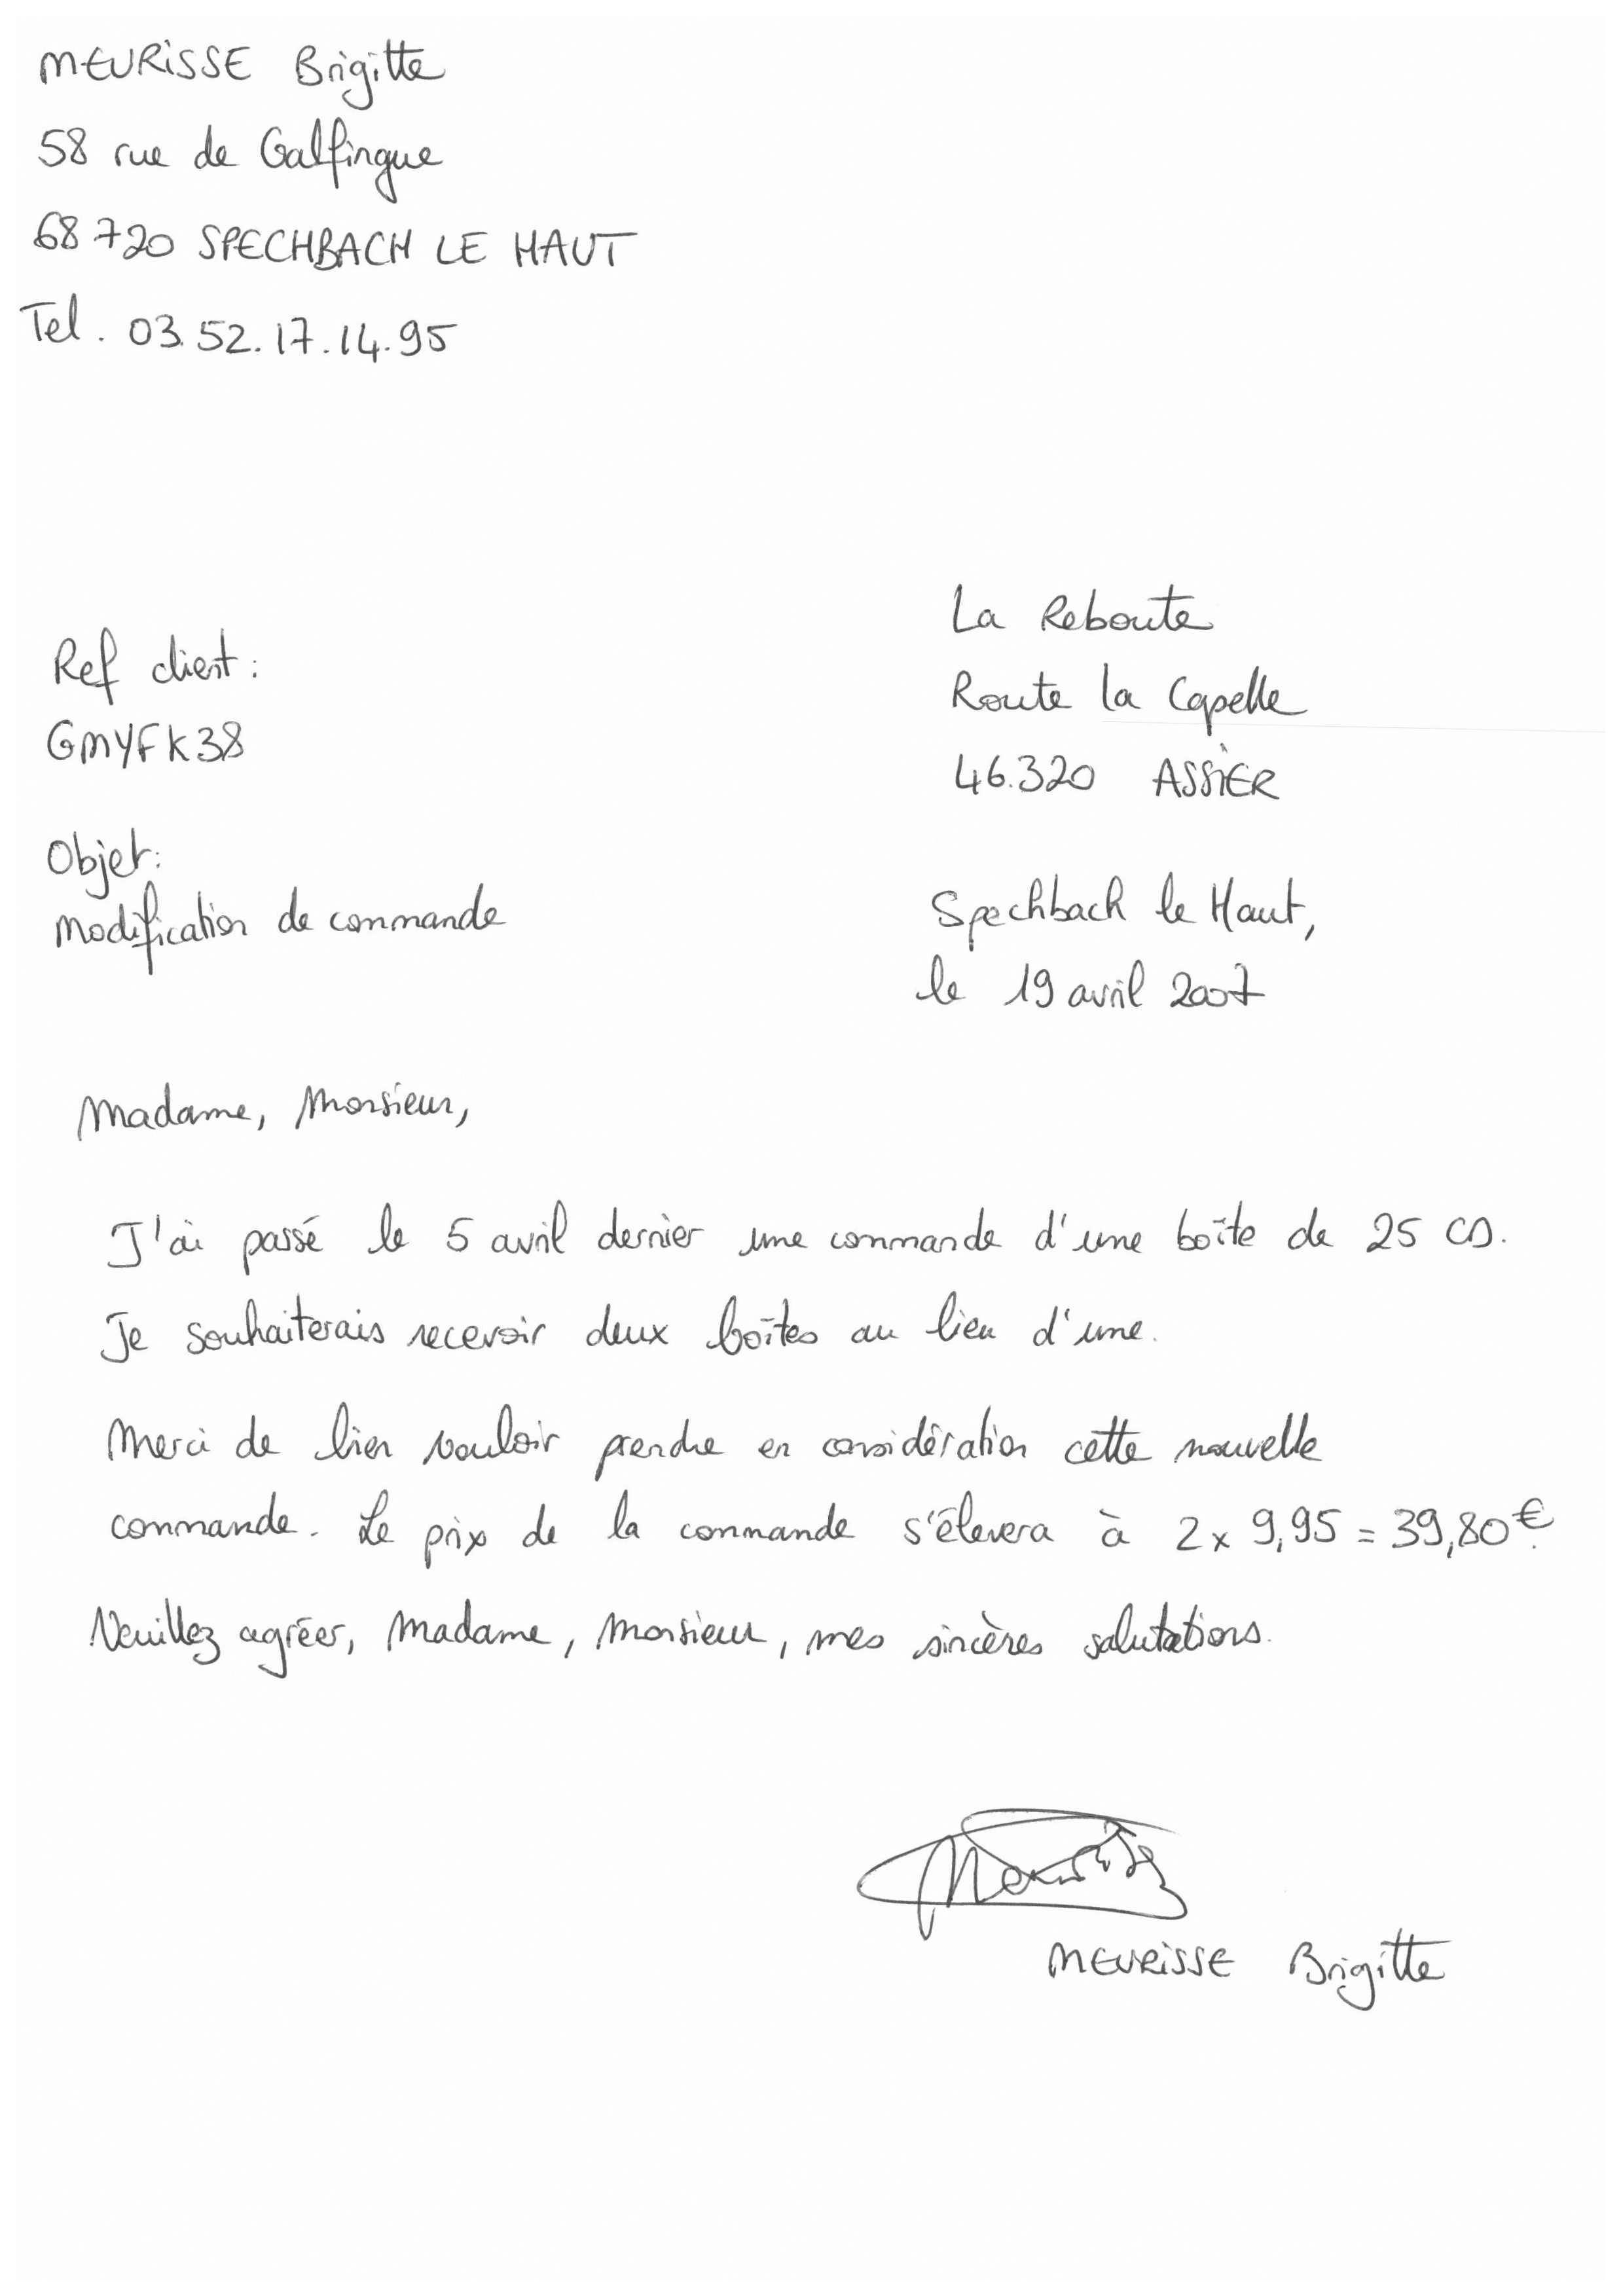 MEURISSE Brigitte
58 rue de Galfingue
68720 SPECHBACH LE HAUT
Tel. 03.52.17.14.95
La Reboute
Route la Capelle
46.320 ASSIER
Ref client:
GMYFK38
Objet:
Modification de commande
Spechbach le Haut,
le 19 avril 2007
Madame, Monsieur,
J'ai passé le 5 avril dernier une commande d'une boîte de 25 CD.
Je souhaiterais recevoir deux boîtes au lieu d'une.
Merci de bien vouloir prendre en considération cette nouvelle
commande. Le prix de la commande s'élevera à 2x 9,95 = 39,80€.
Veuillez agréer, Madame, Monsieur, mes sincères salutations.
MEURISSE Brigitte